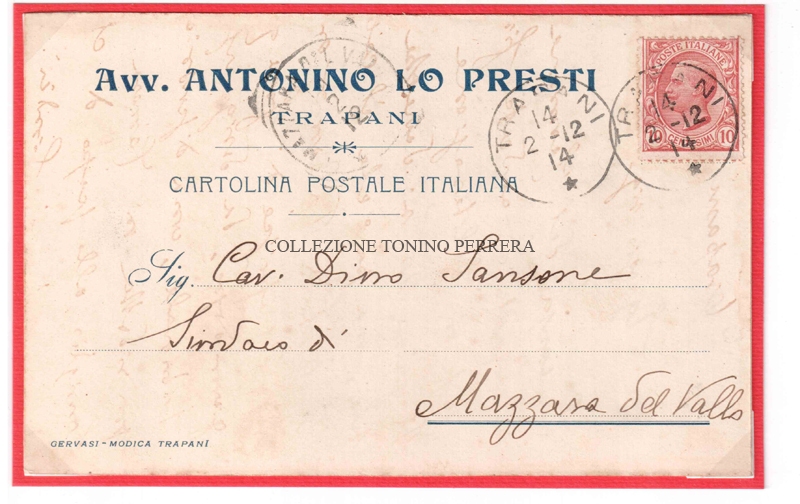 POSTE ITALIANE
CENTESIMI 10
TRAPANI
14
2-12
14
TRAPANI
14
2-12
14
Avv. ANTONINO LO PRESTI
TRAPANI
CARTOLINA POSTALE ITALIANA
COLLEZIONE TONINO PERRERA
Sig. Cav. Divo Sansone
Sindaco di
Mazzara del Vallo
GERVASI - MODICA TRAPANI